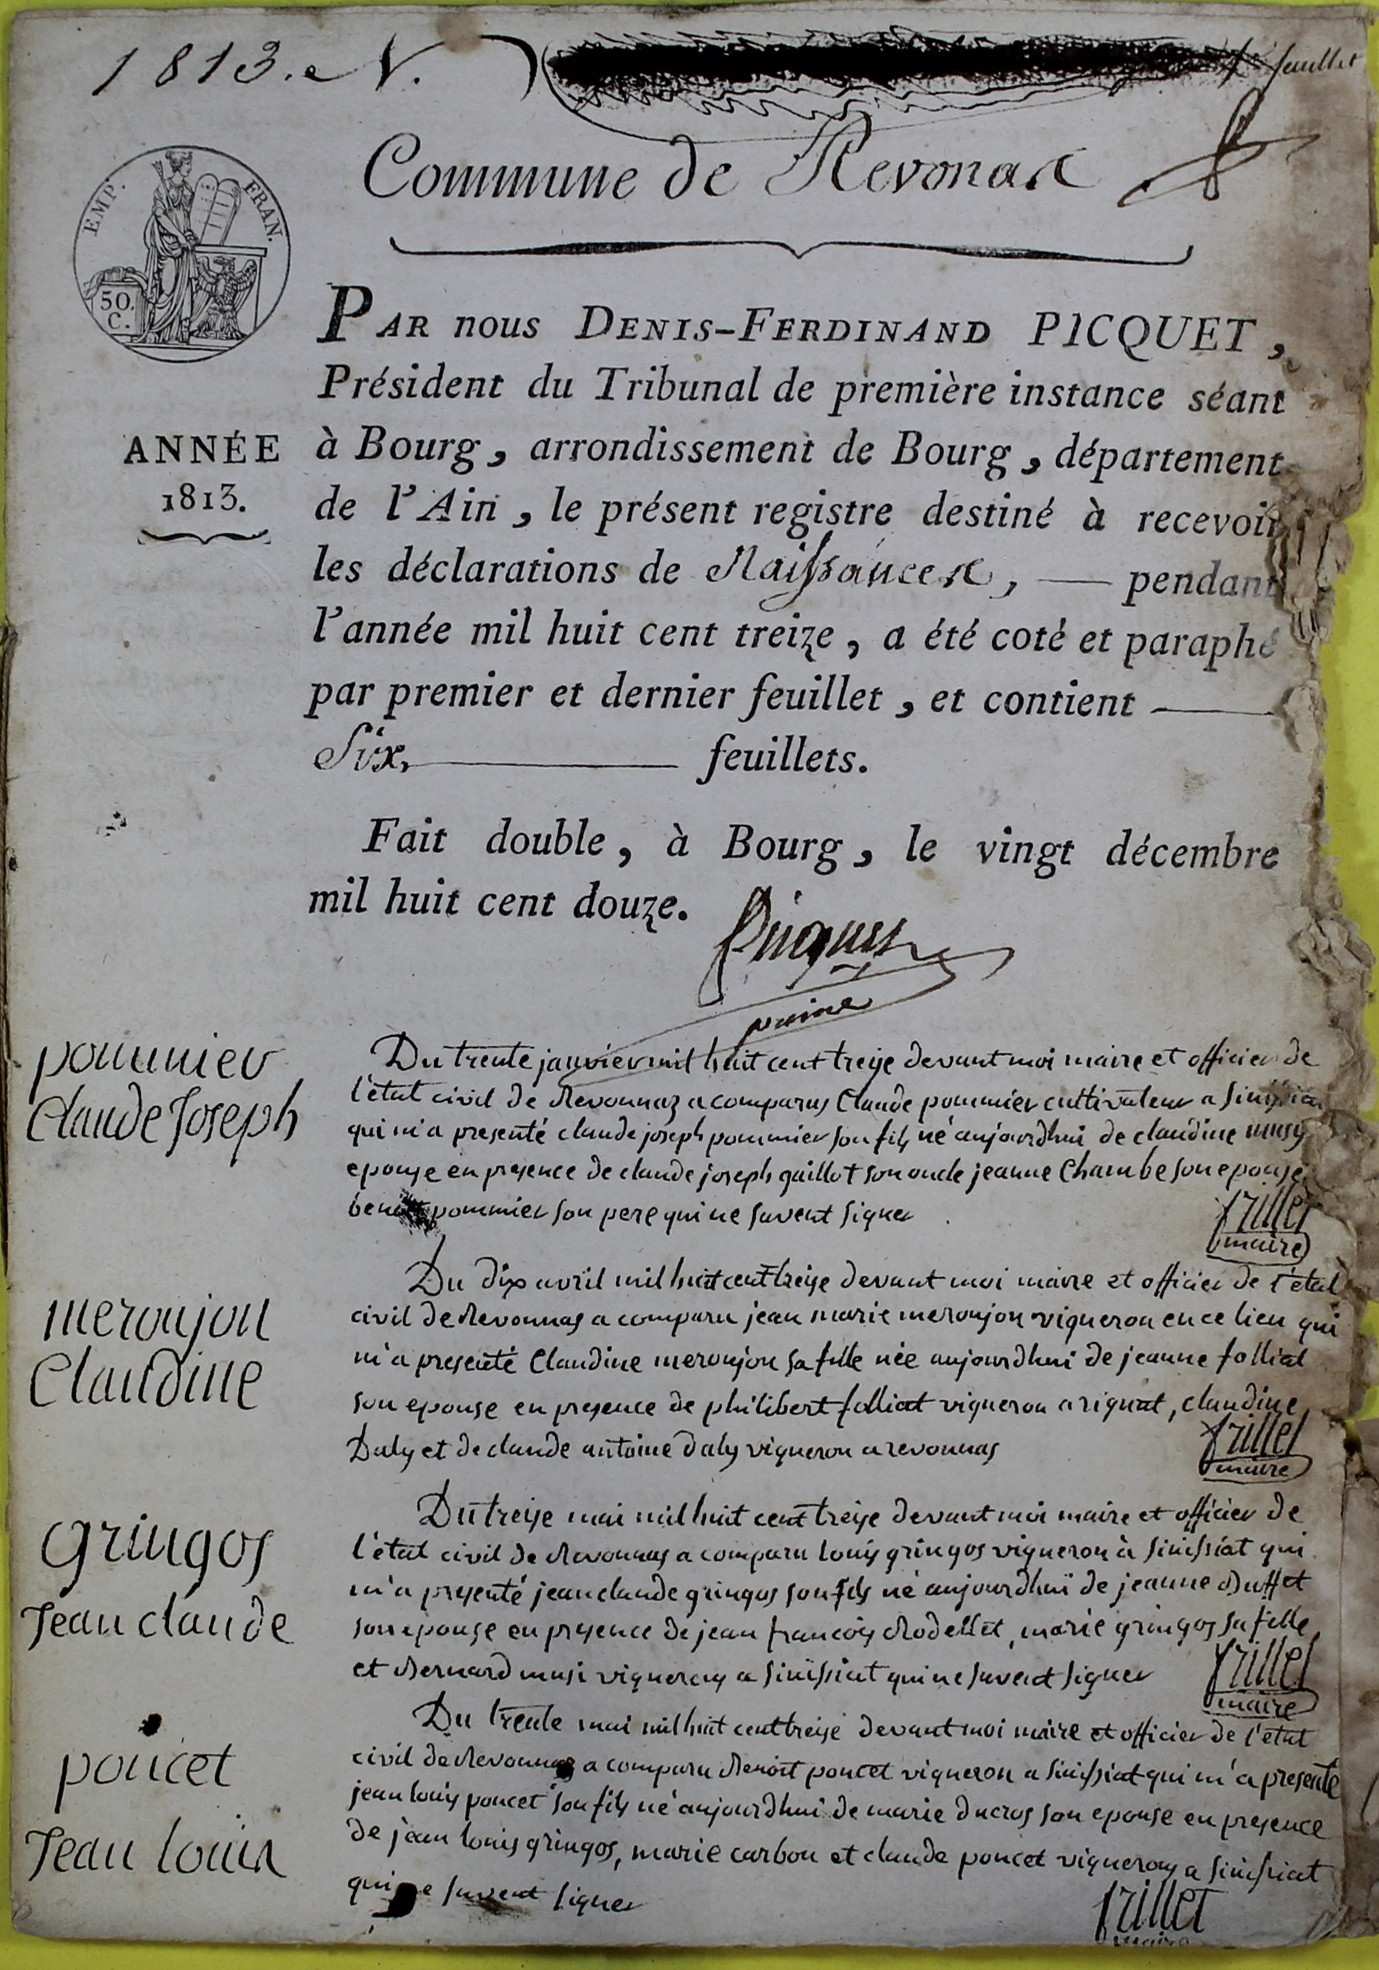 1813. N.
feuillet
Commune de Revonas
EMP. FRAN.
50. C.
PAR nous DENIS-FERDINAND PICQUET,
Président du Tribunal de première instance séant
ANNÉE
1813.
à Bourg, arrondissement de Bourg, département
de l'Ain, le présent registre destiné à recevoir
les déclarations de Naissances, — pendant
l'année mil huit cent treize, a été coté et paraphé
par premier et dernier feuillet, et contient —
Six, — feuillets.
Fait double, à Bourg, le vingt décembre
mil huit cent douze.
Picquet
pommier
Claude Joseph
Du trente janvier mil huit cent treize devant moi maire et officier de
l'état civil de Revonnaz a comparus Claude pommier cultivateur a Sinissiat
qui m'a presenté claude joseph pommier son fils né aujourdhui de claudine musy
epouse en presence de claude joseph guillot son oncle jeanne Chambe son epouse
benoit pommier son pere qui ne savent signer
frillet
maire
meroujon
Claudine
Du dix avril mil huit cent treize devant moi maire et officier de l'état
civil de Revonnas a comparu jean marie meroujon vigneron en ce lieu qui
m'a presenté Claudine meroujon sa fille née aujourdhui de jeanne folliat
son epouse en presence de philibert folliat vigneron a rignat, claudine
Daly et de claude antoine Daly vigneron a revonnas
frillet
maire
gringos
Jean claude
Du treize mai mil huit cent treize devant moi maire et officier de
l'état civil de Revonnas a comparu louis gringos vigneron à Sinissiat qui
m'a presenté jean claude gringos son fils né aujourdhui de jeanne Buffet
son epouse en presence de jean francois Rodellet, marie gringos sa fille
et Bernard musi vignerons a Sinissiat qui ne savent signer
frillet
maire
poncet
Jean louis
Du trente mai mil huit cent treize devant moi maire et officier de l'état
civil de Revonnas a comparu Benoit poncet vigneron a Sinissiat qui m'a presente
jean louis poncet son fils né aujourdhui de marie ducros son epouse en presence
de jean louis gringos, marie carbon et claude poncet vignerons a Sinissiat
qui ne savent signer
frillet
maire